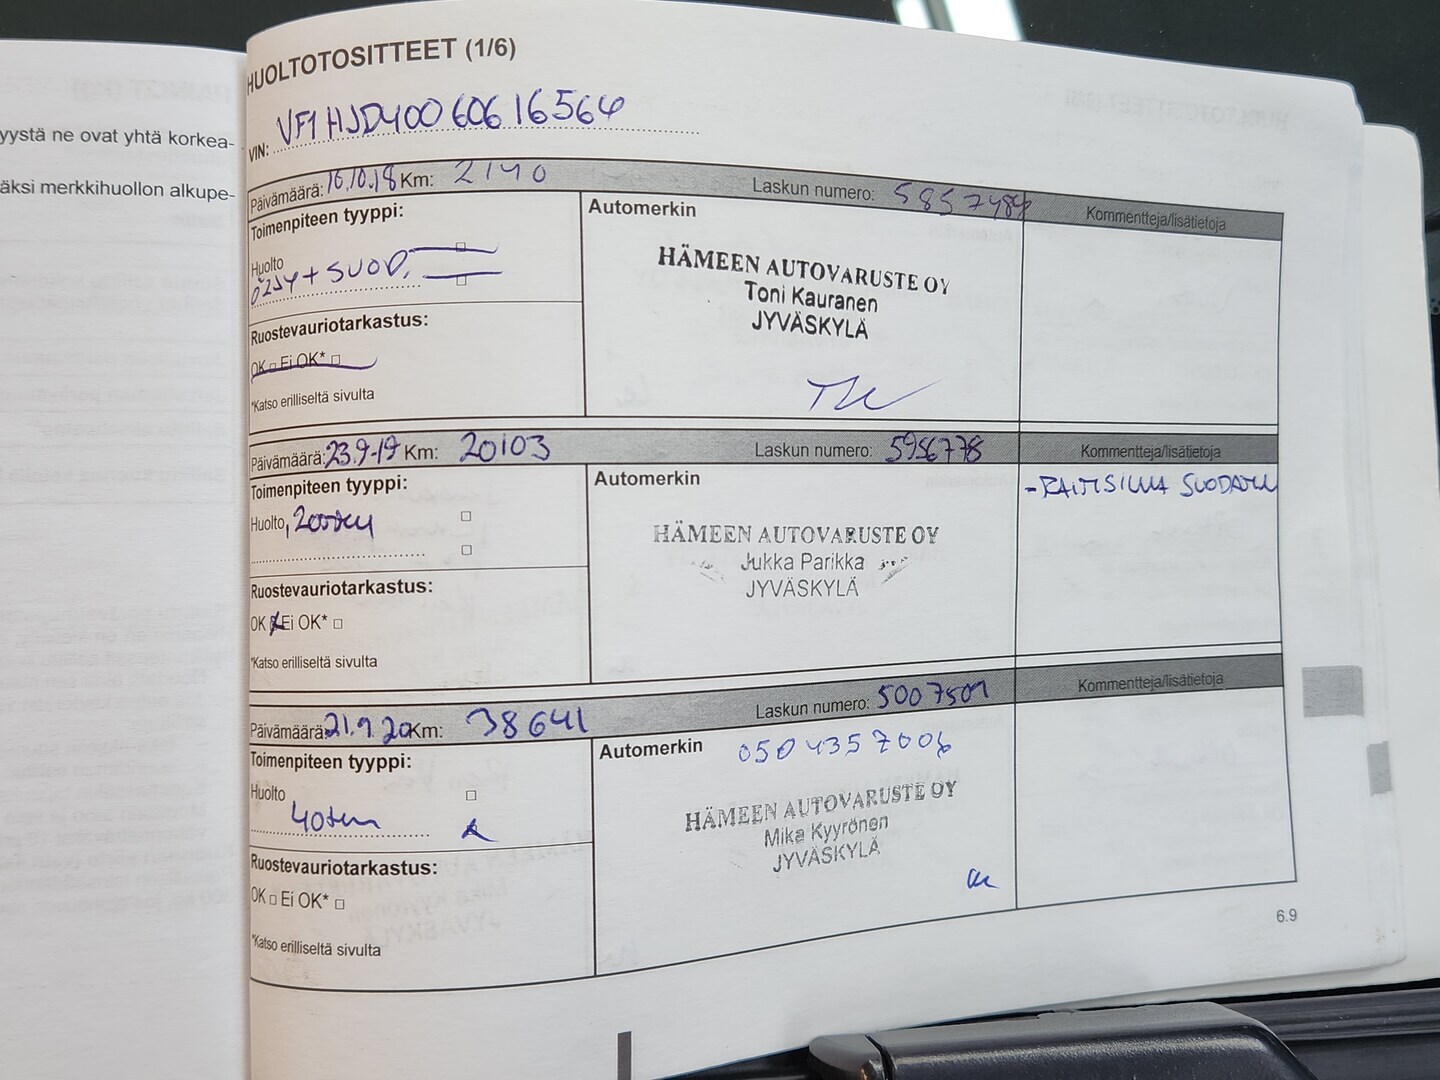 yystä ne ovat yhtä korkea-
äksi merkkihuollon alkupe-
HUOLTOTOSITTEET (1/6)
VIN: VF1HJD40060616564
Päivämäärä: 16.10.18 Km: 2140 Laskun numero: 5857484 Kommentteja/lisätietoja
Toimenpiteen tyyppi:
Automerkin
Huolto □
ÖLJY + SUOD. □
HÄMEEN AUTOVARUSTE OY
Toni Kauranen
JYVÄSKYLÄ
Ruostevauriotarkastus:
OK □ Ei OK* □
*Katso erilliseltä sivulta
Päivämäärä: 23.9-19 Km: 20103 Laskun numero: 5956778 Kommentteja/lisätietoja
Toimenpiteen tyyppi:
Automerkin
- RAITISILMA SUODATIN
Huolto, □
□
HÄMEEN AUTOVARUSTE OY
Jukka Parikka
JYVÄSKYLÄ
Ruostevauriotarkastus:
OK Ei OK* □
*Katso erilliseltä sivulta
Päivämäärä: 21.9.20 Km: 38641 Laskun numero: 5007501 Kommentteja/lisätietoja
Toimenpiteen tyyppi:
Automerkin 0504357006
Huolto □
40tkm
HÄMEEN AUTOVARUSTE OY
Mika Kyyrönen
JYVÄSKYLÄ
Ruostevauriotarkastus:
OK □ Ei OK* □
*Katso erilliseltä sivulta
6.9